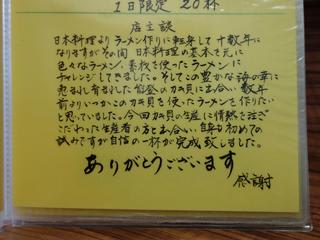 1日限定 20杯
店主談
日本料理よりラーメン作りに転身して十数年に
なりますがその間 日本料理の基本を元に
色々なラーメン、素材を使ったラーメンに
チャレンジしてきました。そしてこの豊かな海の幸に
恵まれ育まれた能登のカキ貝に出合い 数年
前よりいつかこのカキ貝を使ったラーメンを作りたい
と思っていました。今回カキ貝の生産に情熱を注ぎ
こだわった生産者の方と出合い、自身も初めての
試みですが自信の一杯が完成致しました。
ありがとうございます
感謝